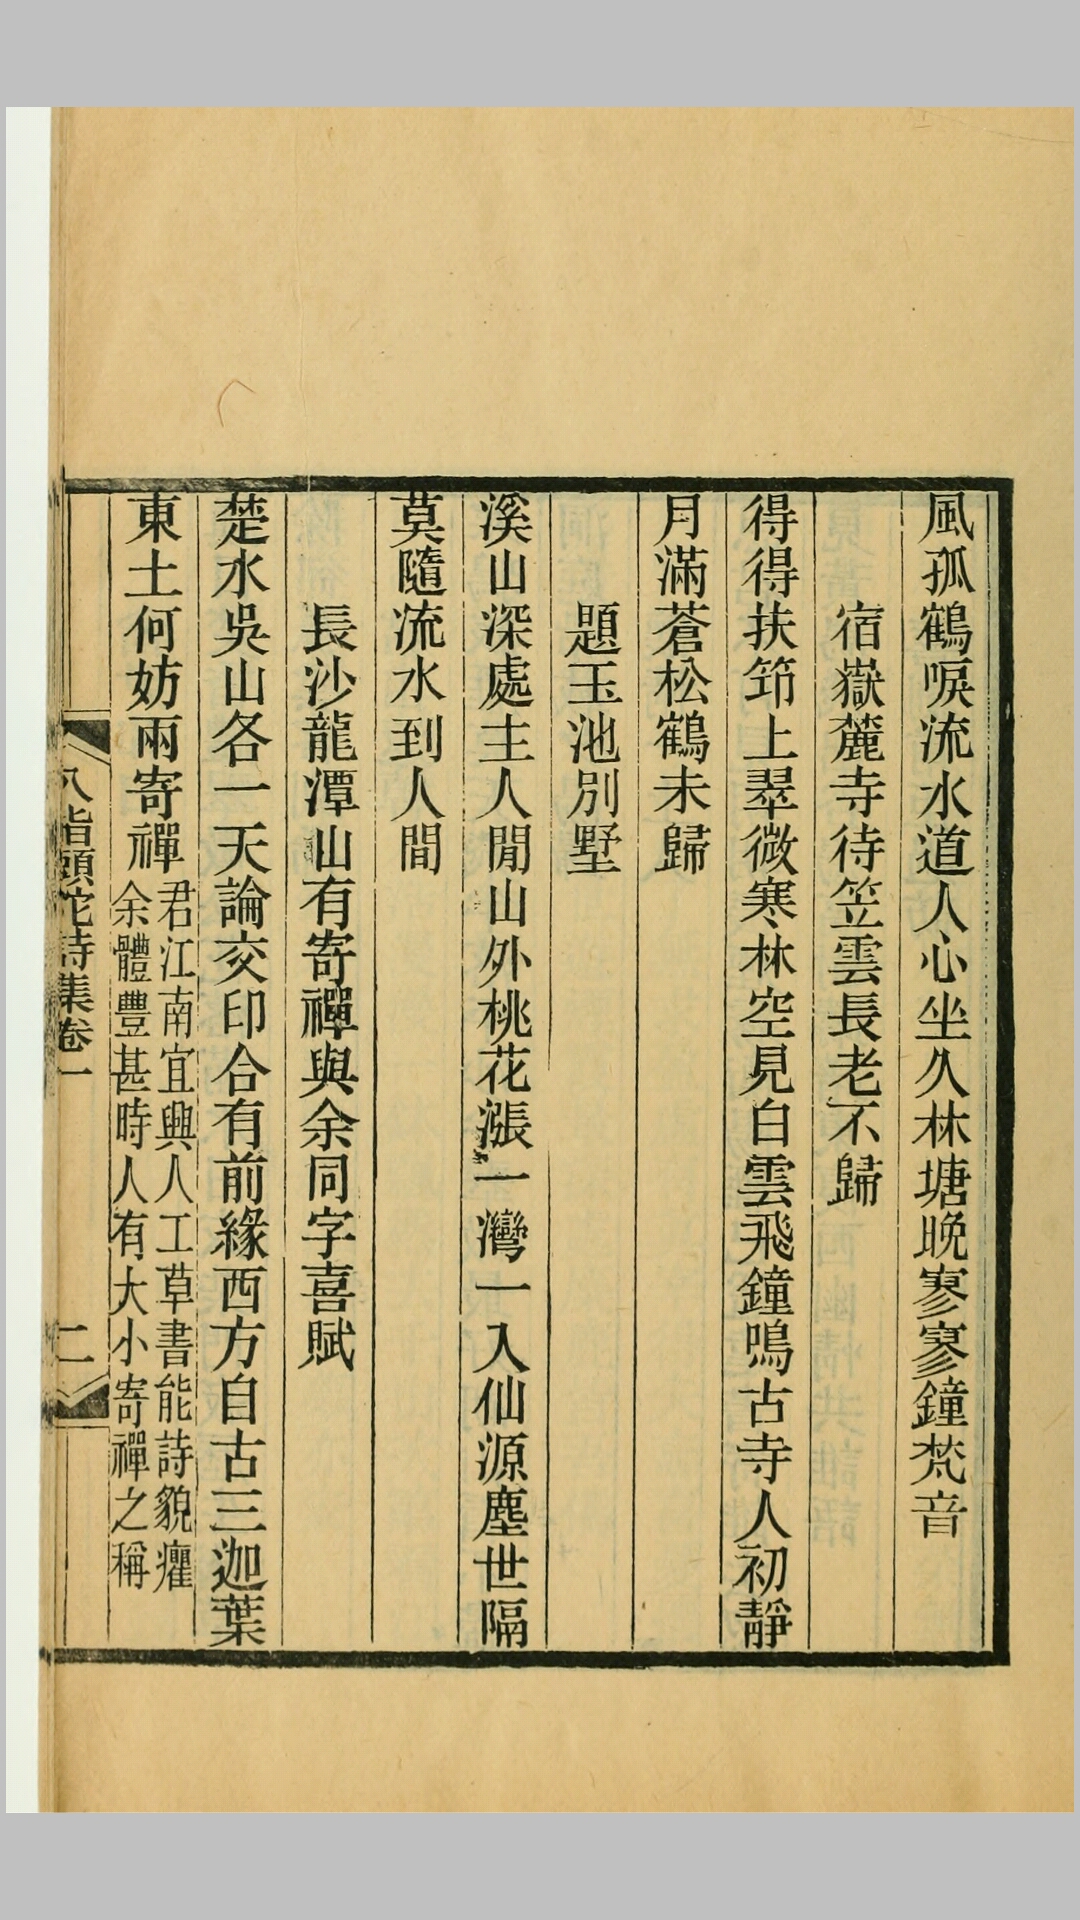 風孤鶴唳流水道人心坐久林塘晚寥寥鐘梵音
宿嶽麓寺待笠雲長老不歸
得得扶筇上翠微寒林空見白雲飛鐘鳴古寺人初靜
月滿蒼松鶴未歸
題玉池別墅
溪山深處主人閒山外桃花漲一灣一入仙源塵世隔
莫隨流水到人間
長沙龍潭山有寄禪與余同字喜賦
楚水吳山各一天論交印合有前緣西方自古三迦葉
東土何妨兩寄禪
君江南宜興人工草書能詩貌癯
余體豐甚時人有大小寄禪之稱
八指頭陀詩集卷一
二